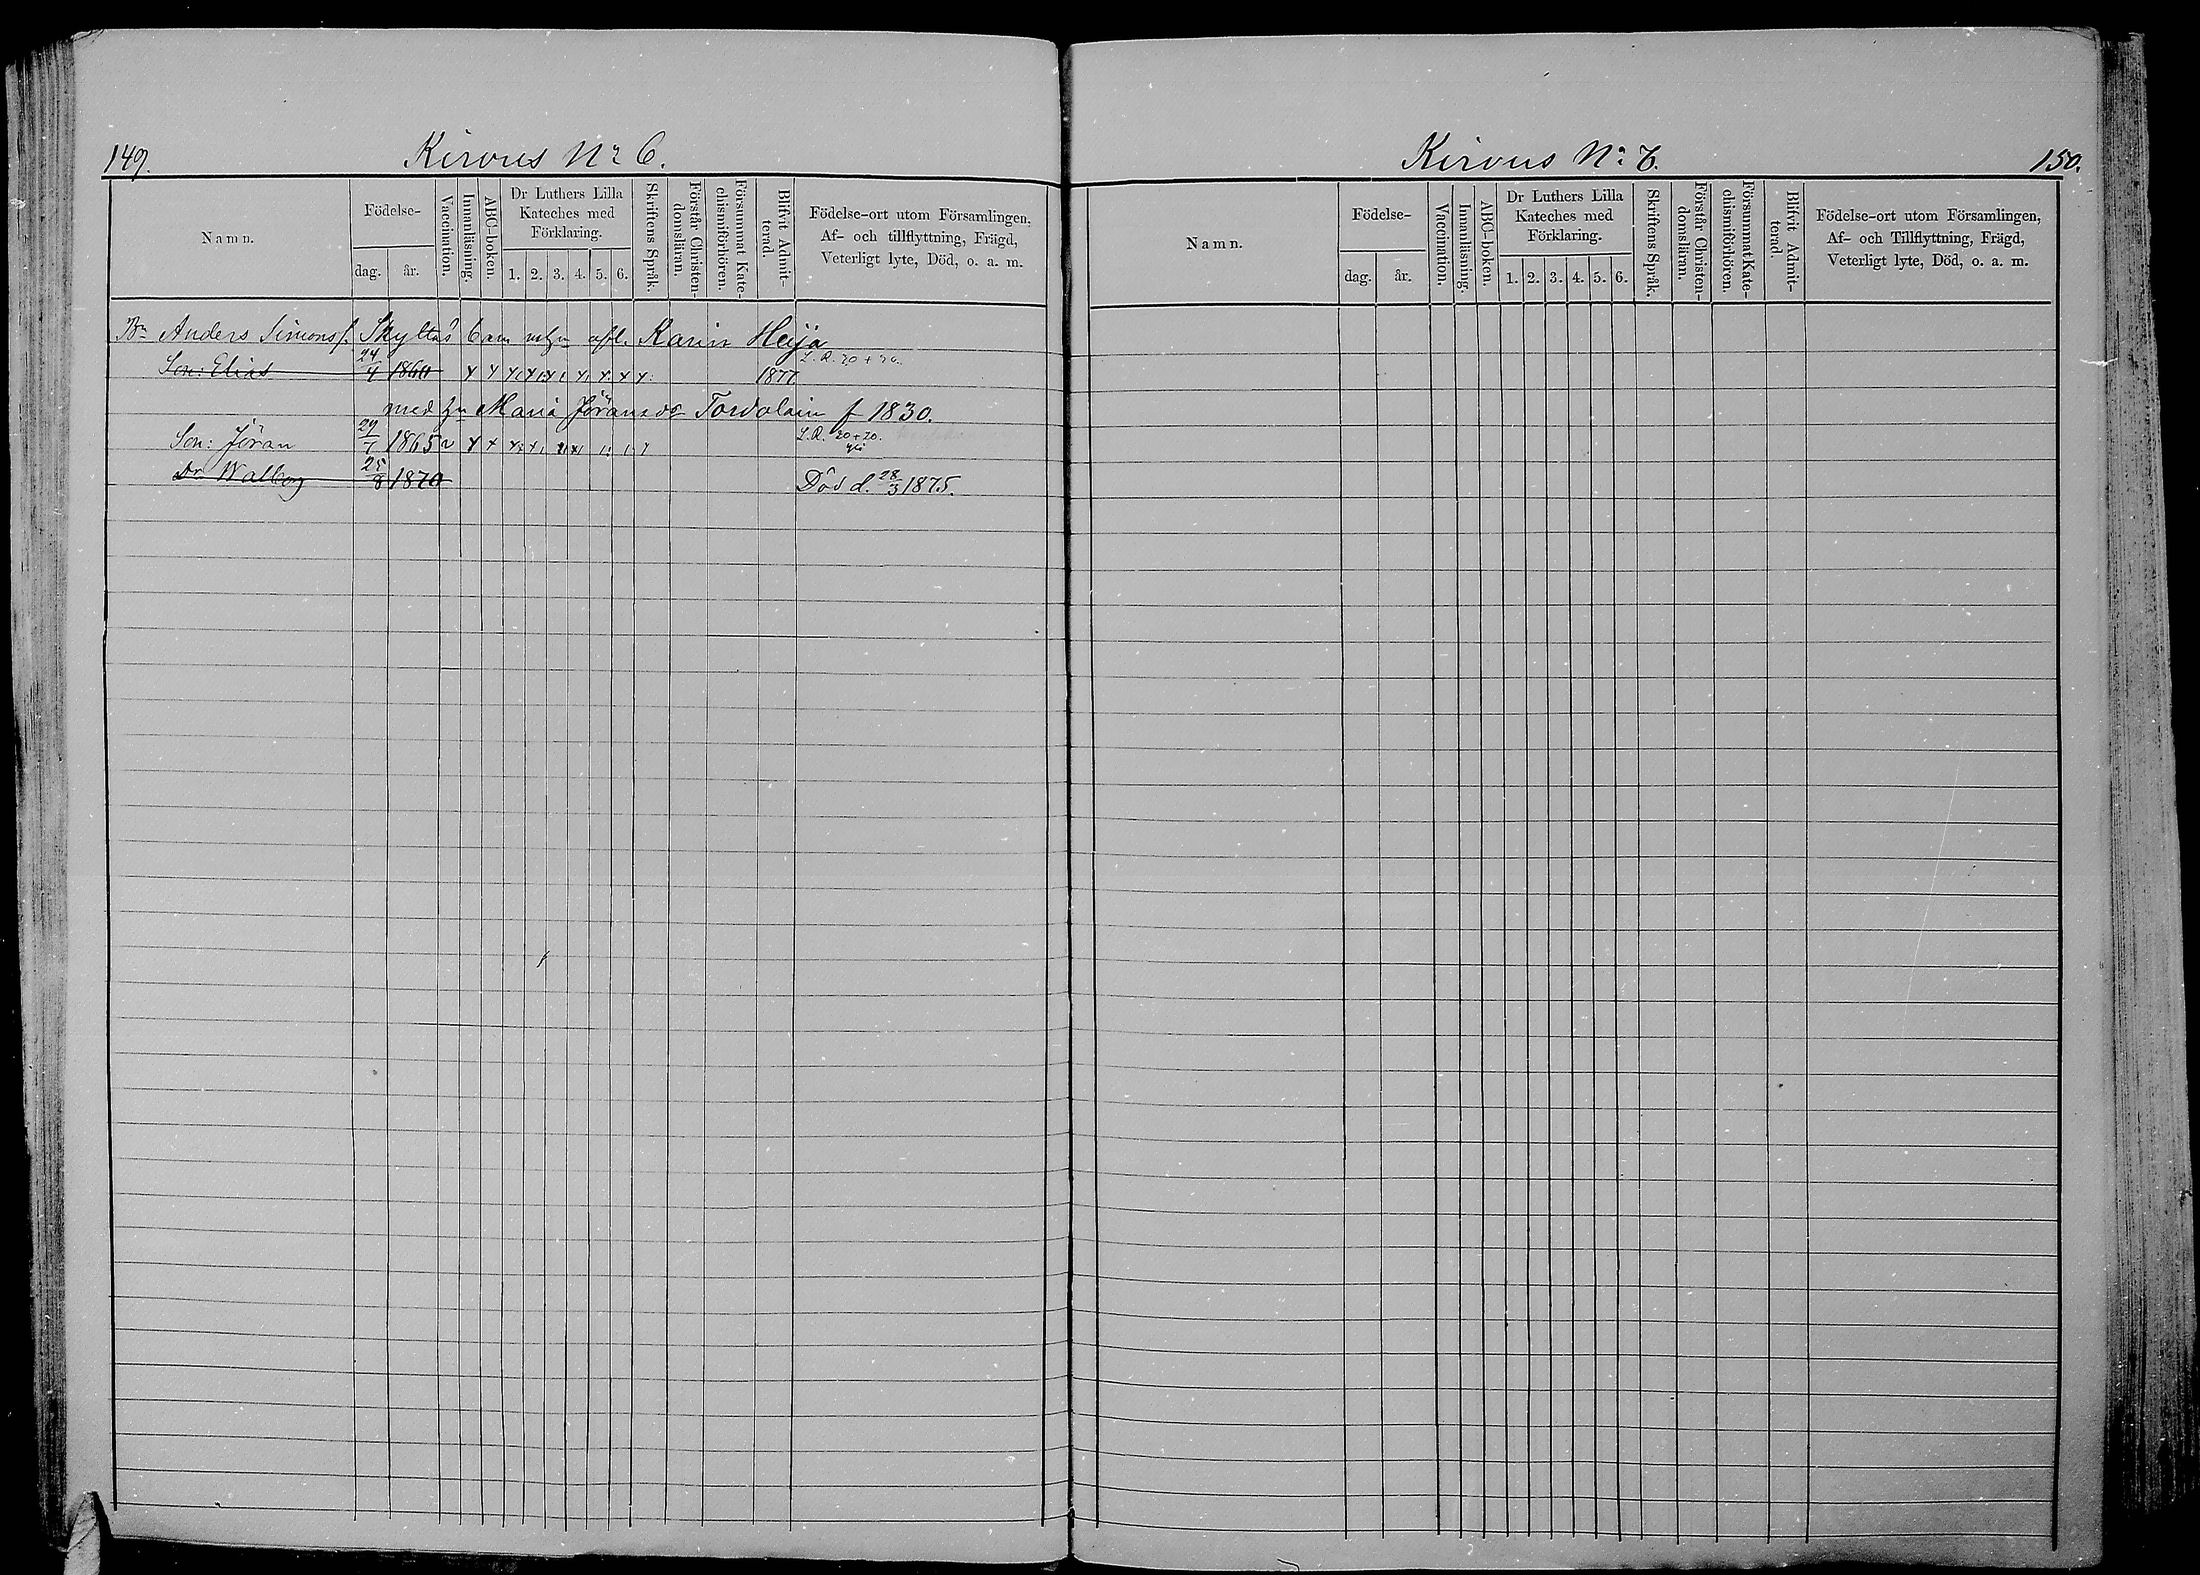 149.
Kirvus No 6.
Namn.
Födelse-
dag.
år.
Vaccination.
Innanläsning.
ABC-boken.
Dr Luthers Lilla
Kateches med
Förklaring.
1. 2. 3. 4. 5. 6.
Skriftens Språk.
Förstår Christen-
domsläran.
Försummat Kate-
chismiförhören.
Blifvit Admit-
terad.
Födelse-ort utom Församlingen,
Af- och tillflyttning, Frägd,
Veterligt lyte, Död, o. a. m.
Bn Anders Simonss. Skyttäs barn afl. Karin Heijä
Son: Elias 24/4 1860 x x x x x x x x x 1877 L.R. 20 + 20.
med hu Maria Jöransdr Tordolain f 1830.
Son: Jöran 29/7 1865 v x x L.R. 20 + 20.
Dr Walborg 25/8 1870 Död d. 28/3 1875.
Kirvus No 6.
150.
Namn.
Födelse-
dag.
år.
Vaccination.
Innanläsning.
ABC-boken.
Dr Luthers Lilla
Kateches med
Förklaring.
1. 2. 3. 4. 5. 6.
Skriftens Språk.
Förstår Christen-
domsläran.
Försummat Kate-
chismiförhören.
Blifvit Admit-
terad.
Födelse-ort utom Församlingen,
Af- och Tillflyttning, Frägd,
Veterligt lyte, Död, o. a. m.